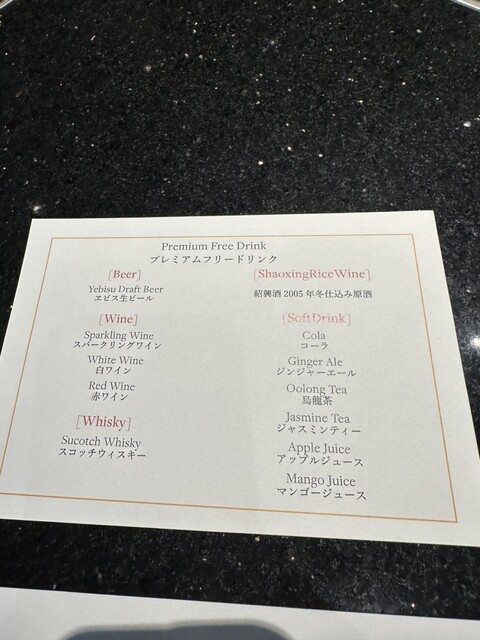 Premium Free Drink
プレミアムフリードリンク
[Beer]
Yebisu Draft Beer
ヱビス生ビール
[Wine]
Sparkling Wine
スパークリングワイン
White Wine
白ワイン
Red Wine
赤ワイン
[Whisky]
Sucotch Whisky
スコッチウィスキー
[ShaoxingRiceWine]
紹興酒 2005 年冬仕込み原酒
[SoftDrink]
Cola
コーラ
Ginger Ale
ジンジャーエール
Oolong Tea
烏龍茶
Jasmine Tea
ジャスミンティー
Apple Juice
アップルジュース
Mango Juice
マンゴージュース